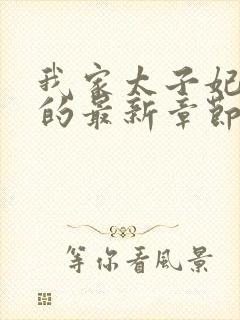 我家太子妃
的最新章節
等你看風景